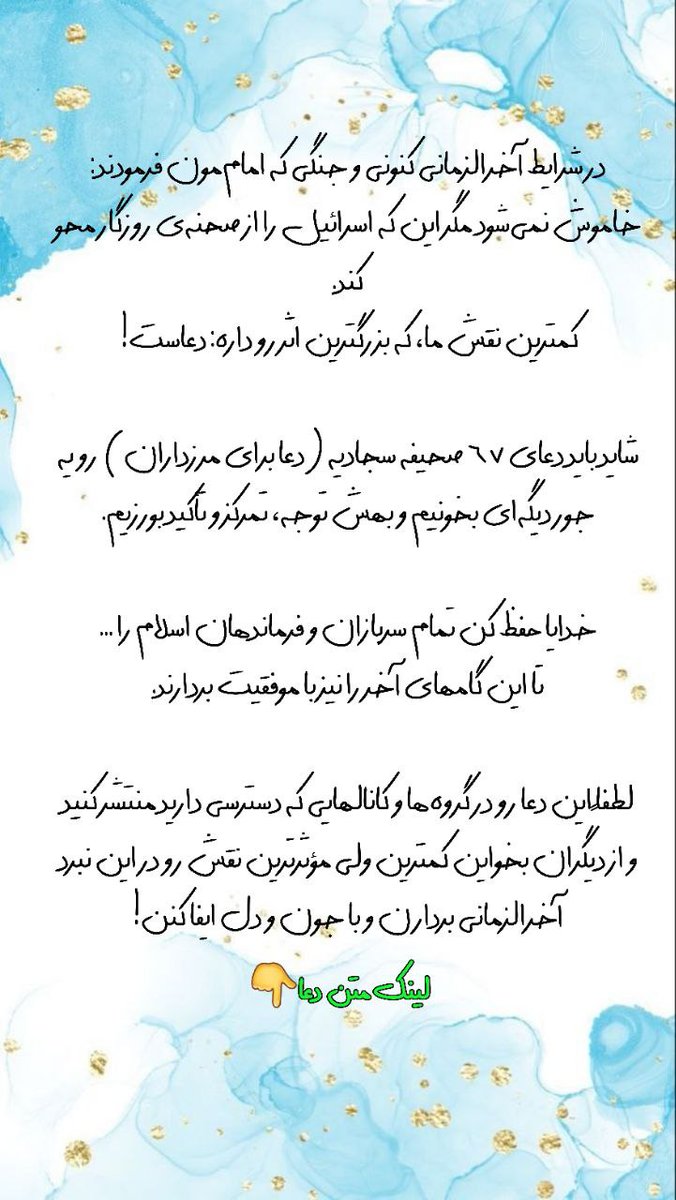 در شرایط آخرالزمانی کنونی و جنگی که امام‌مون فرمودند:
خاموش نمی‌شود مگر این که اسرائیل را از صحنه‌ی روزگار محو
کند.
کمترین نقش ما، که بزرگترین اثر رو داره: دعاست!
شاید باید دعای ٦٧ صحیفه سجادیه (دعا برای مرزداران) رو یه
جور دیگه‌ای بخونیم و بهش توجه، تمرکز و تأکید بورزیم.
خدایا حفظ کن تمام سربازان و فرماندهان اسلام را ...
تا این گام‌های آخر را نیز با موفقیت بردارند.
لطفا این دعا رو در گروه ها و کانالهایی که دسترسی دارید منتشر کنید
و از دیگران بخواین کمترین ولی مؤثرترین نقش رو در این نبرد
آخرالزمانی بردارن و با جون و دل ایفا کنن!
لینک متن دعا👇